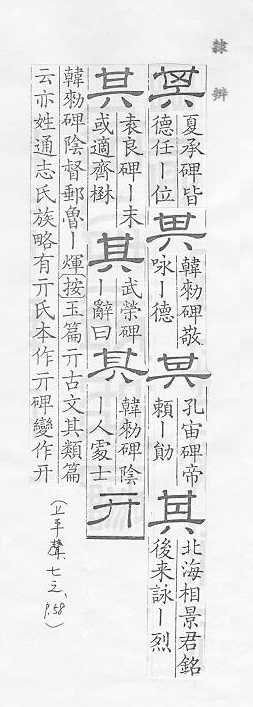 隸辨
其
夏承碑皆
德任｜位
其
韓勑碑敬
咏｜德
其
孔宙碑帝
頼｜勛
其
北海相景君銘
後来詠｜烈
其
袁良碑｜末
或適齊楙
其
武榮碑
｜辭曰
其
韓勑碑陰
｜人處士
亓
韓勑碑陰督郵魯｜煇按玉篇亓古文其類篇
云亦姓通志氏族略有亓氏本作亓碑變作开
(上平聲、七之、p.58)